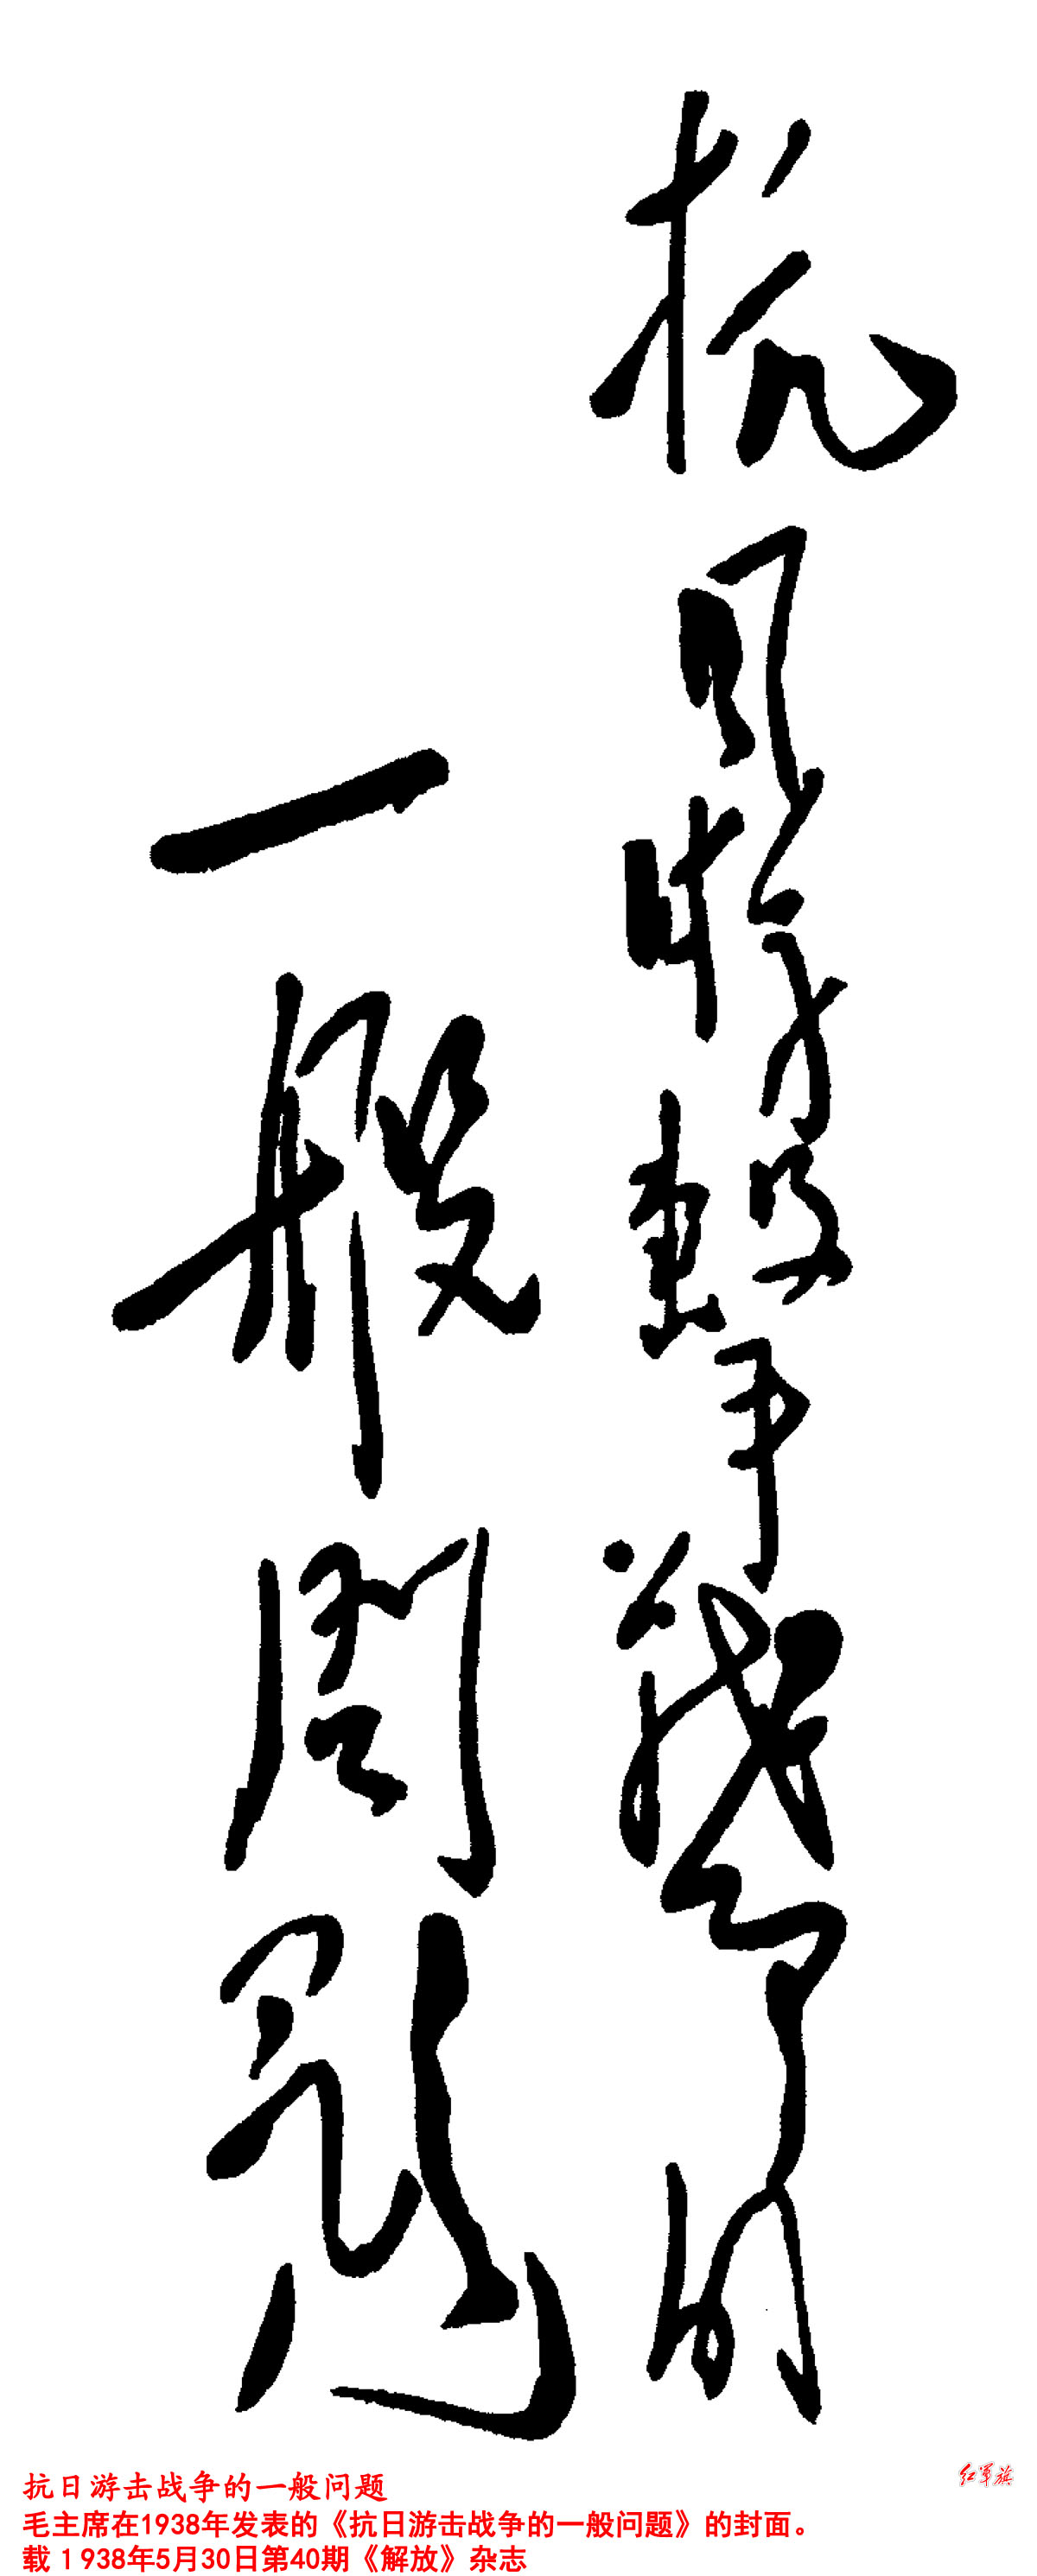 抗日游擊戰爭的
一般問題
抗日游击战争的一般问题
毛主席在1938年发表的《抗日游击战争的一般问题》的封面。
载 1938年5月30日第40期《解放》杂志
红军旗